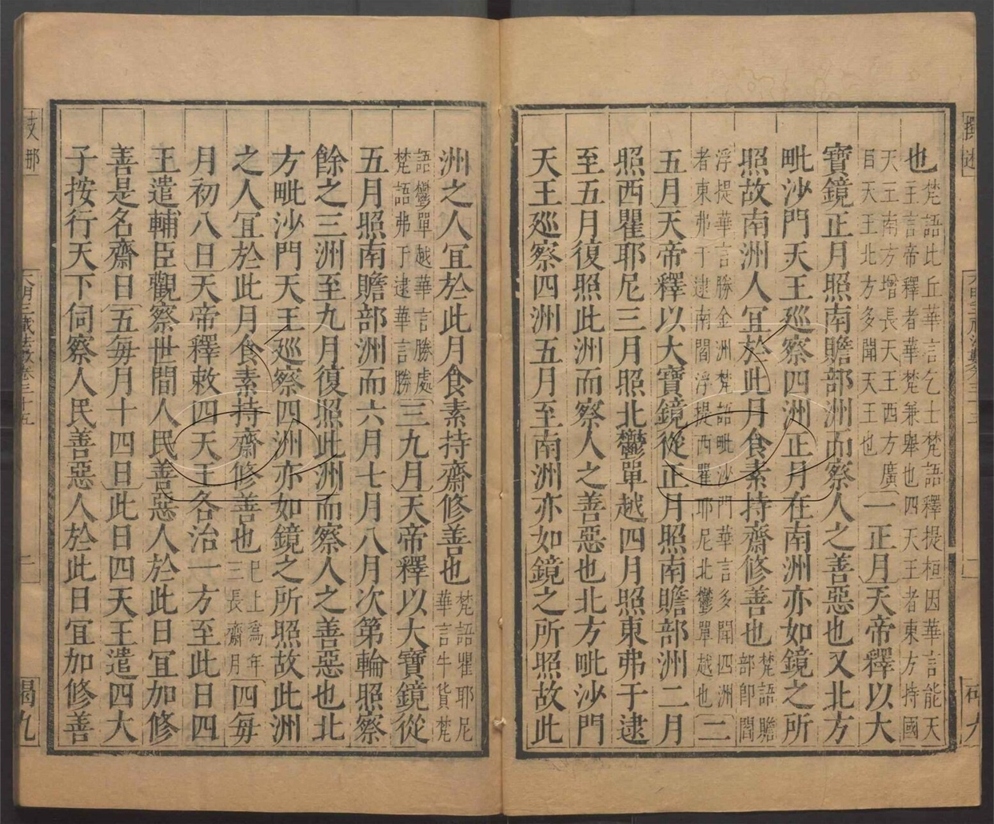 撰述
也梵語比丘華言乞士梵語釋提桓因華言能天
主言帝釋者華梵兼舉也四天王者東方持國
天王南方增長天王西方廣
目天王北方多聞天王也一正月天帝釋以大
寶鏡正月照南贍部洲而察人之善惡也又北方
毗沙門天王廵察四洲正月在南洲亦如鏡之所
照故南洲人宜於此月食素持齋修善也梵語贍
部即閻
浮提華言勝金洲梵語毗沙門華言多聞四洲
者東弗于逮南閻浮提西瞿耶尼北鬱單越也二
五月天帝釋以大寶鏡從正月照南贍部洲二月
照西瞿耶尼三月照北鬱單越四月照東弗于逮
至五月復照此洲而察人之善惡也北方毗沙門
天王廵察四洲五月至南洲亦如鏡之所照故此
洲之人宜於此月食素持齋修善也梵語瞿耶尼
華言牛貨梵
語鬱單越華言勝處
梵語弗于逮華言勝三九月天帝釋以大寶鏡從
五月照南贍部洲而六月七月八月次第輪照察
餘之三洲至九月復照此洲而察人之善惡也北
方毗沙門天王廵察四洲亦如鏡之所照故此洲
之人宜於此月食素持齋修善也已上為年
三長齋月四每
月初八日天帝釋敕四天王各治一方至此日四
王遣輔臣觀察世間人民善惡人於此日宜加修
善是名齋日五每月十四日此日四天王遣四大
子按行天下伺察人民善惡人於此日宜加修善
支那
大明三藏法數卷三十五
二
碣九